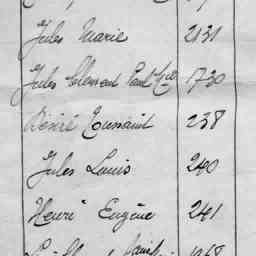 Jules Marie 2131
Jules Clement Paul 1730
Désiré Toussaint 238
Jules Louis 240
Henri Eugène 241